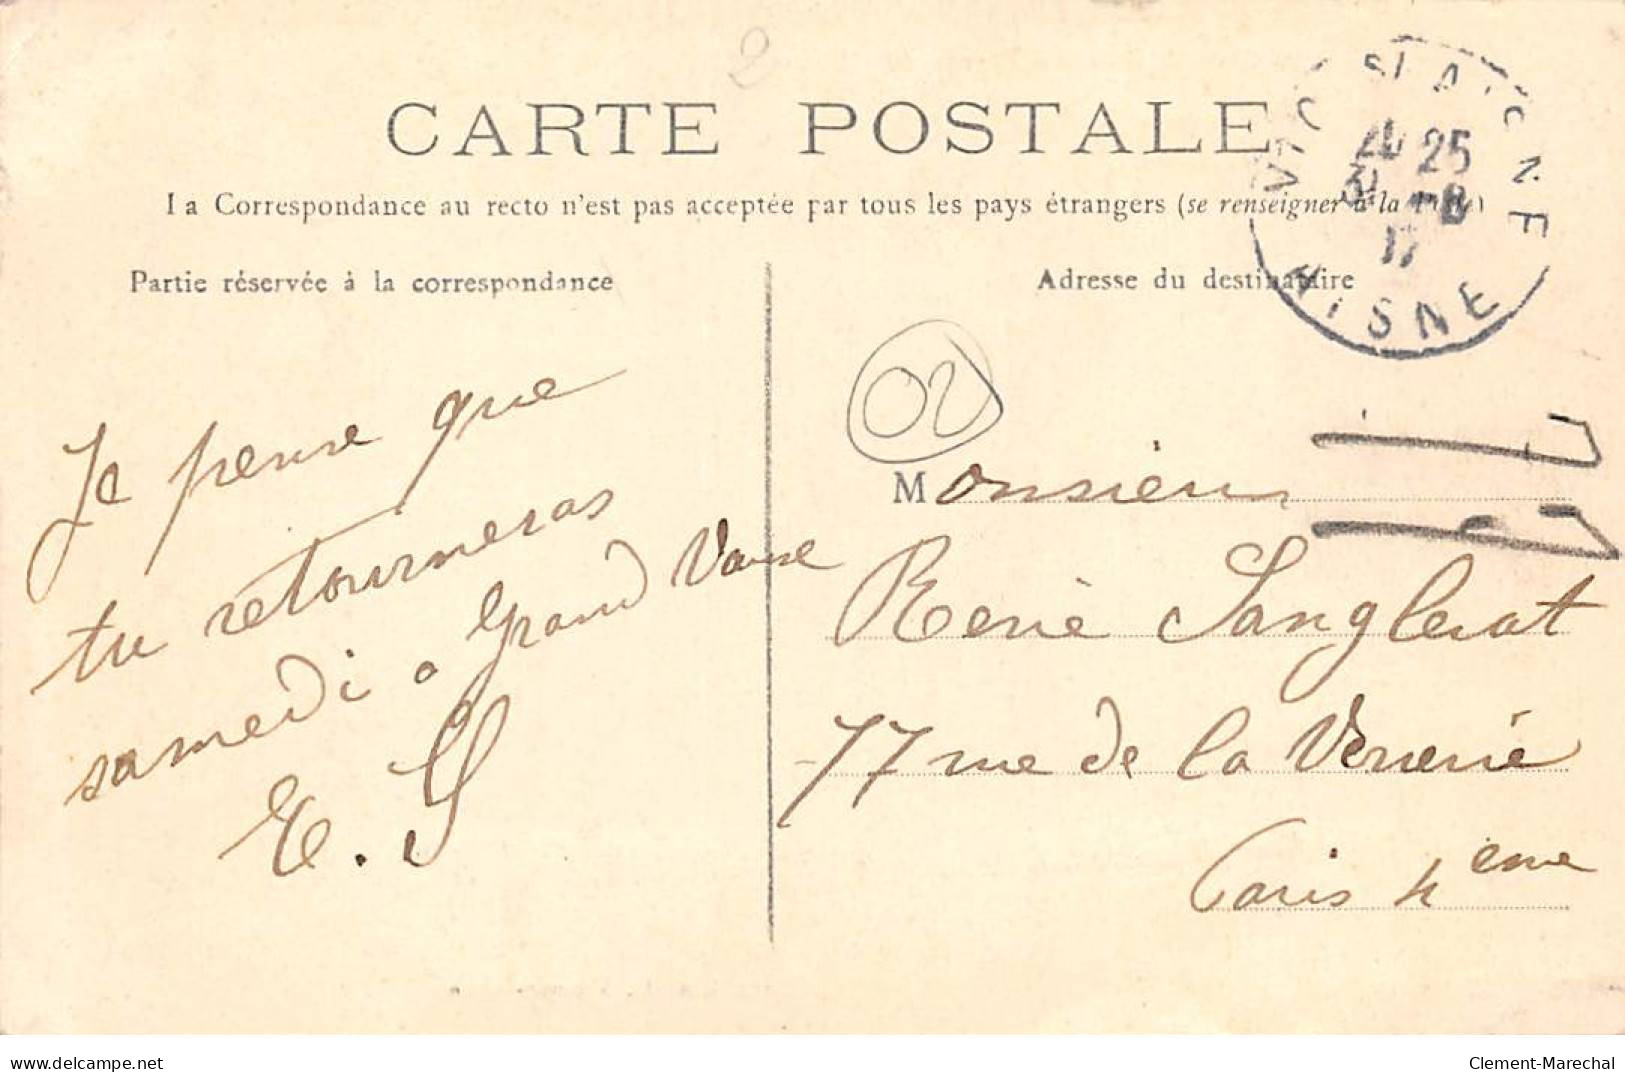 2
CARTE POSTALE
La Correspondance au recto n'est pas acceptée par tous les pays étrangers (se renseigner à la Poste)
Partie réservée à la correspondance
Je pense que
tu retourneras
samedi a Grand
E. S
Adresse du destinataire
02
Monsieur
René Sanglerat
77 rue de la Verrerie
Paris 4eme
VIC S/ AISNE
25
31
17
AISNE
www.delcampe.net
Clement-Marechal